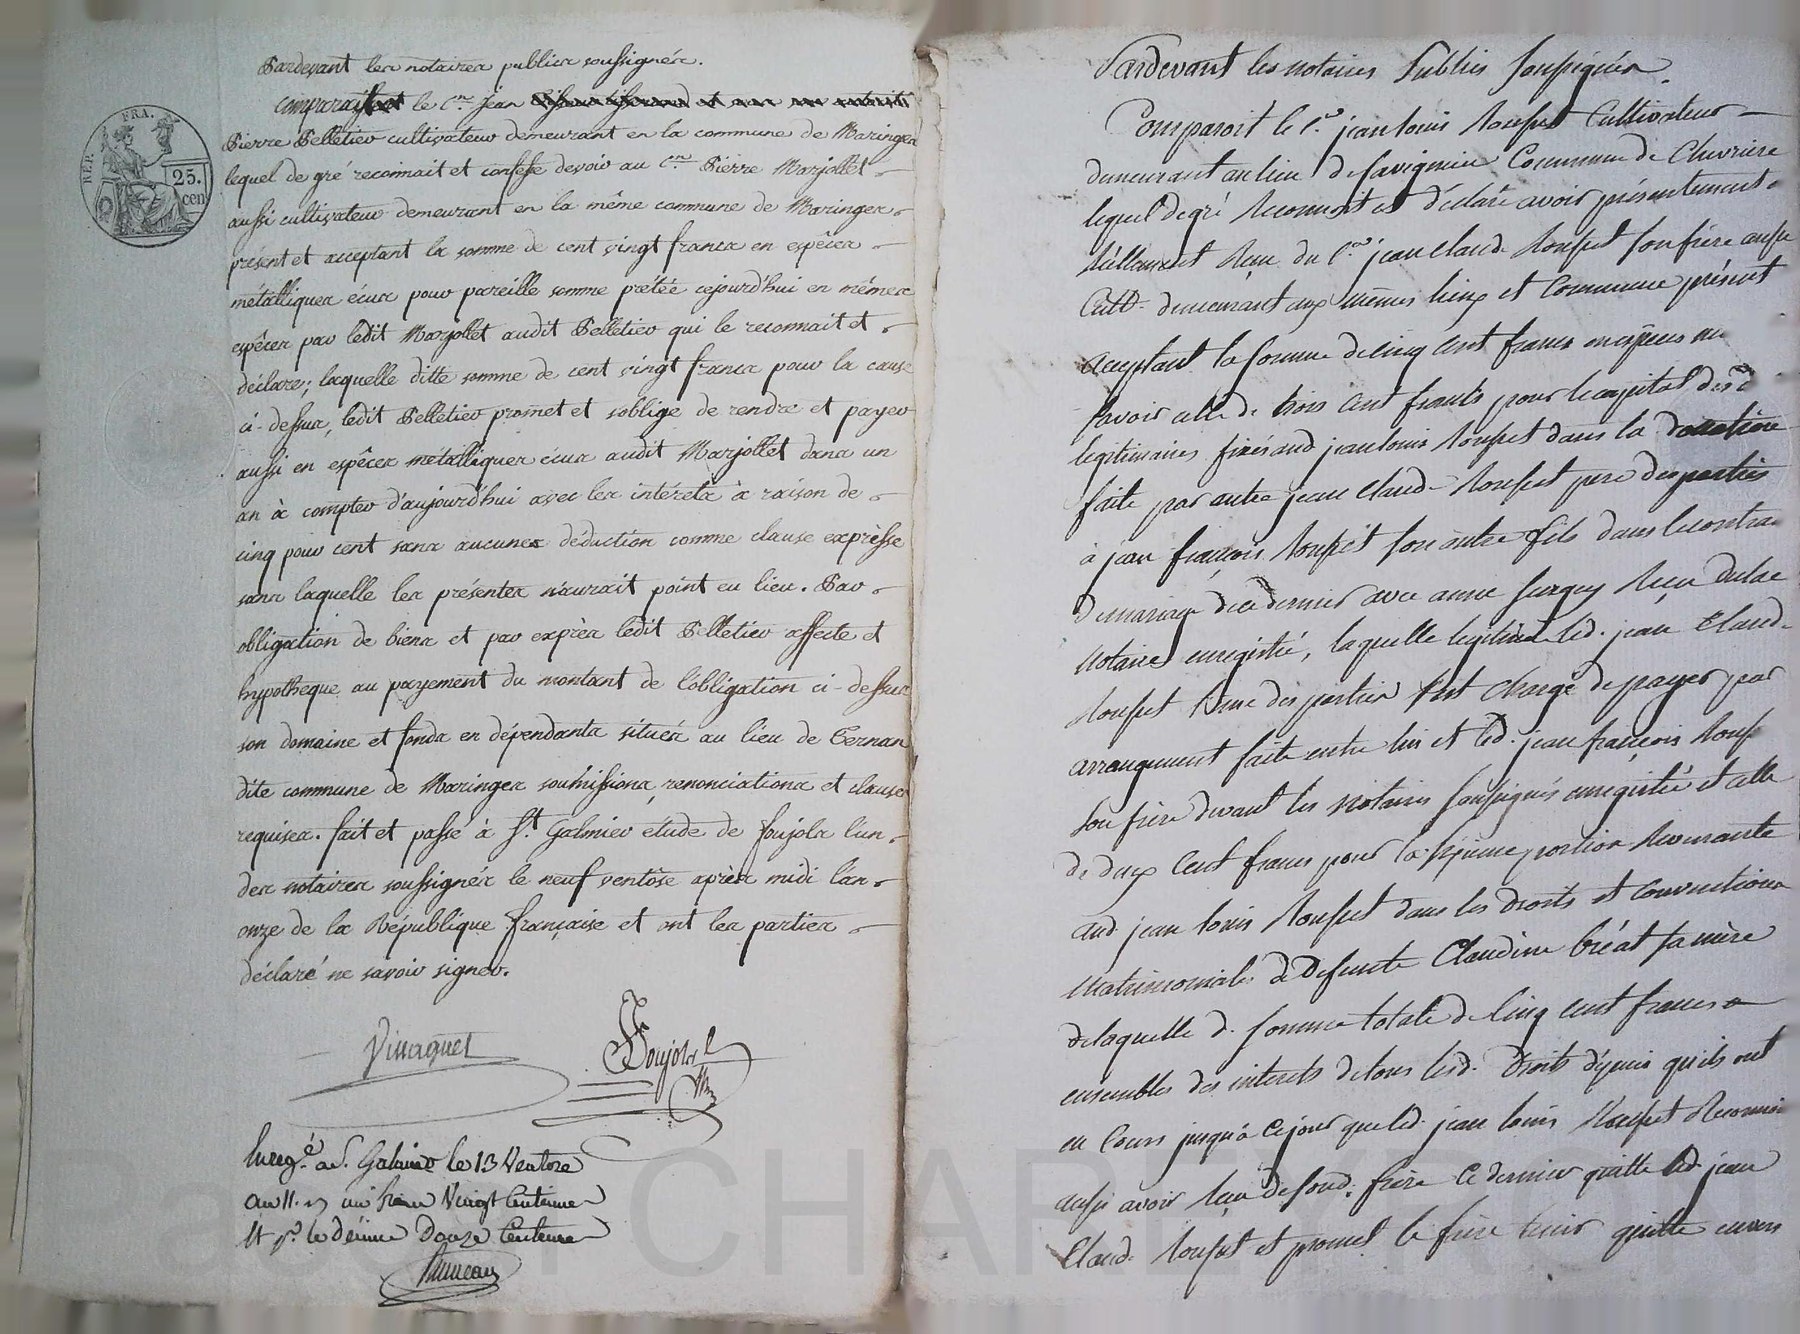 Pardevant les notaires publics soussignés.
comparait le C.en Jean
Pierre Pelletier cultivateur demeurant en la commune de Maringes
lequel de gré reconnait et confesse devoir au C.en Pierre Marjollet
aussi cultivateur demeurant en la même commune de Maringes
présent et acceptant la somme de cent vingt francs en espèces
métalliques écus pour pareille somme prêtée cejourd'hui en mêmes
espèces par ledit Marjollet audit Pelletier qui le reconnait et
déclare; laquelle ditte somme de cent vingt francs pour la cause
ci-dessus, ledit Pelletier promet et s'oblige de rendre et payer
aussi en espèces métalliques écus audit Marjollet dans un
an à compter d'aujourd'hui avec les intérêts à raison de
cinq pour cent sans aucunes déduction comme clause expresse
sans laquelle les présentes n'aurait point eu lieu. Par
obligation de biens et par exprès ledit Pelletier affecte et
hypotheque au payement du montant de l'obligation ci-dessus
son domaine et fonds en dépendants situés au lieu de Cernan
dite commune de Maringes soumissions, renonciations et clauses
requises. fait et passé à S.t Galmier etude de Poujols l'un
des notaires soussignés le neuf ventôse après midi l'an
onze de la République française et ont les parties
déclaré ne savoir signer.
Poujols
Enreg.é a S. Galmier le 13 Ventose
an 11. un franc Vingt Centimes
et p.r le dixime Douze Centimes
REP. FRA.
25. cen
Pardevant les notaires Publics soussignés
Comparoit le C.en jean louis Roussset Cultivateur
demeurant au lieu de savignieu Commune de Chevriere
lequel de gré Reconnoit et déclare avoir présentement
Réellement Reçu du C.en jean Claude Rousset son frère aussi
Cult. demeurant aux mêmes lieux et Commune présent
acceptant la somme de cinq cent francs en espèces
savoir celle de trois cent francs pour le capital des
legitimaires fixés aud jean louis Rousset dans la donation
faite par autre jean Claude Rousset pere des parties
à jean françois Rousset son autre fils dans le contra
de mariage de ce dernier avec anne Reçu
Notaire enregistré, laquelle legitime led. jean Claude
Rousset l'une des parties s'est chargé de payer par
arrangement faite entre lui et led. jean françois Rouss
son frère devant les notaires soussignés enregistré et celle
de deux Cent francs pour la sixieme portion Revenante
aud jean louis Rousset dans les droits et conventions
Matrimoniales de Defunte Claudine Créat sa mère
de laquelle d. somme totale de Cinq cent francs
ensembles des interets de tous lesd. Droits depuis qu'ils ont
eu Cours jusqu'à Ce jour que led. jean louis Rousset Reconnoi
aussi avoir Reçu de sond. frère Ce dernier quitte led. jean
Claude Rousset et promet le faire tenir quitte envers
CHAREYRON